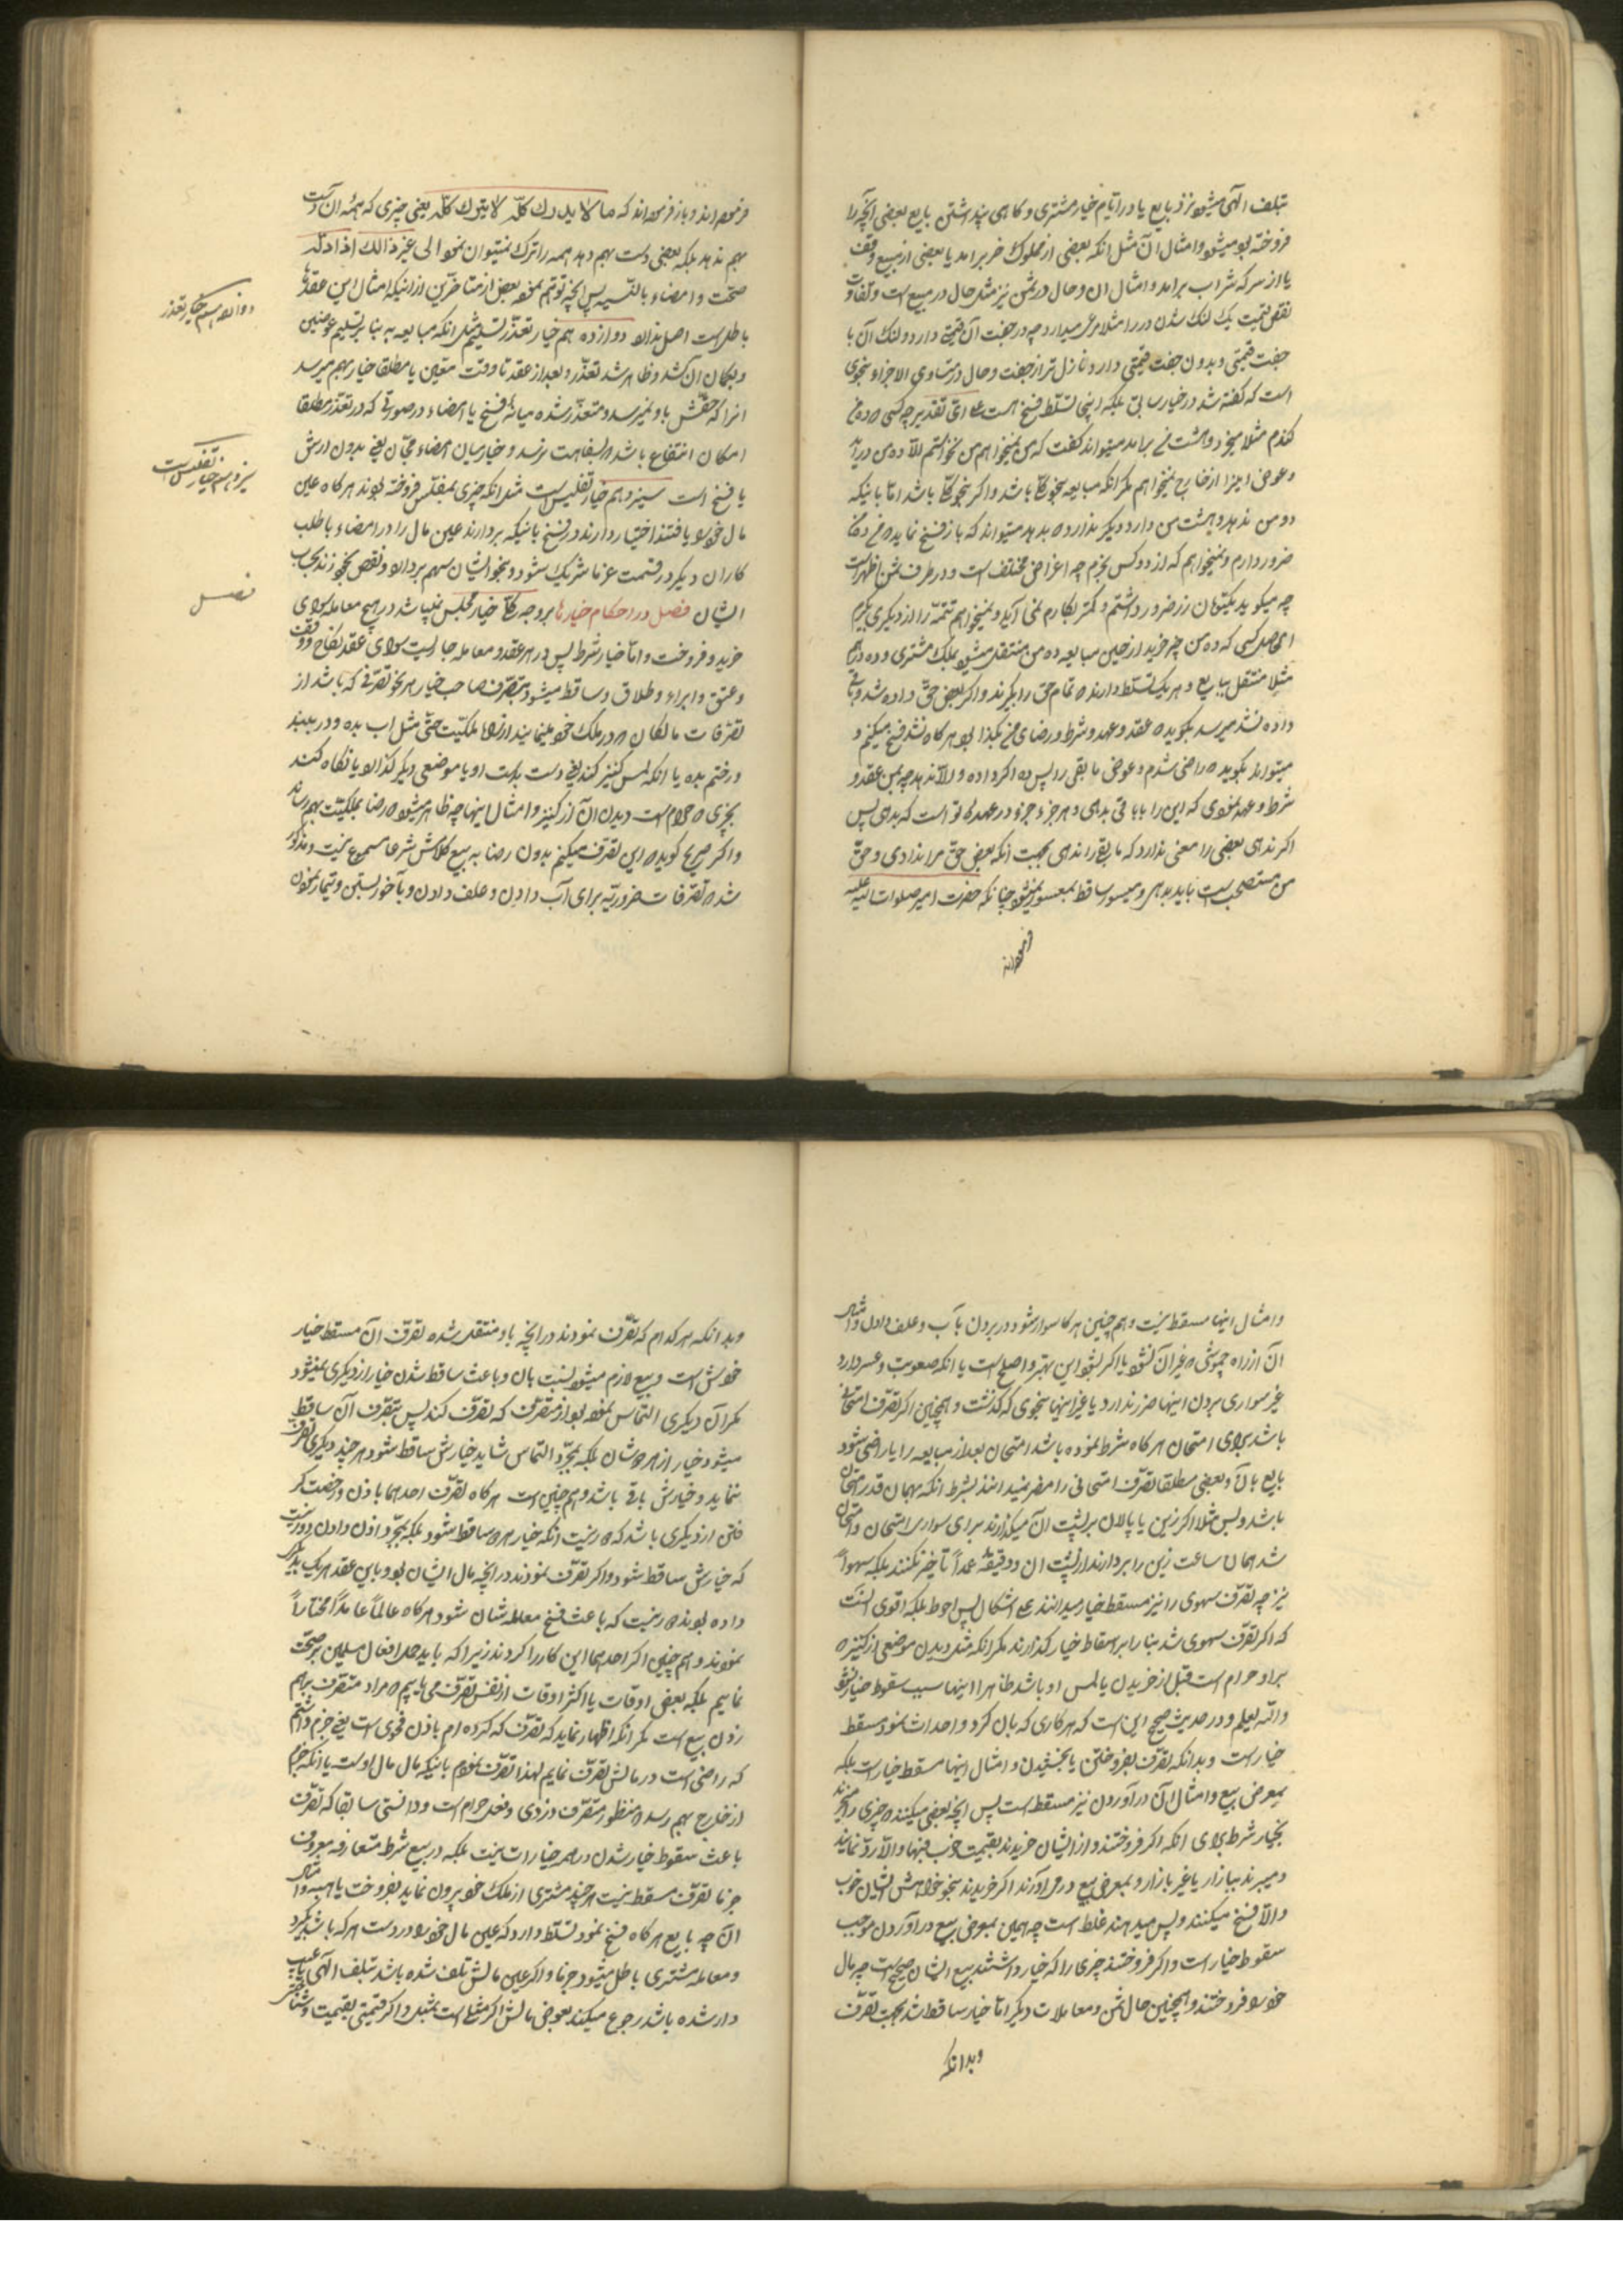 تبلف الهی میشود نزد بایع یا در ایام خیار مشتری و کاهی پنداشتن بایع بعضی انچه را
فروخته بود میشود و امثال آن مثل انکه بعضی از مملوک حر برامد یا بعضی از مبیع وقف
یا از سرکه شراب برامد و امثال ان و حال در ثمن نیز مثل حال در مبیع است و تفاوت
نقص قیمت یک لنک شدن در را مثلا عرض میدارد چه در جفت آن قیمتی دارد و لنک آن با
جفت قیمتی و بدون جفت قیمتی دارد نازل تر از جفت و حال در متساوی الاجزاء بنحوی
است که کفته شد در خیار سابق بلکه اینجا تسلط فسخ هست علی ای تقدیر چه کسی ده من
کندم مثلا میخرد و هشت من برامد میتواند کفت که من نمیخواهم من نخواستم الا ده من
و عوض اینرا از خارج نمیخواهم مکر انکه مبایعه بنحو کلی باشد و اکر بنحو کلی باشد اما باینکه
دو من ندهد و هشت من دارد دیکر ندارد بدهد میتواند که باز فسخ نماید
ضرور دارم و نمیخواهم که از دو کس بخرم چه اغراض مختلف است و در طرف ثمن اظهر است
چه میکوید یکتومان زر ضرور داشتم و کمتر بکارم نمی آید و نمیخواهم تتمه را از دیکری بکیرم
الحاصل کسی که ده من چیز خرید از حین مبایعه ده من منتقل میشود بملک مشتری و ده درهم
مثلا منتقل ببایع و هر یک تسلط دارند تمام حق را بکیرند و اکر بعض حق داده شد و باقی
داده نشد میرسد بکوید عقد و عهد و شرط و رضای من بکذا بود هرکاه نشد فسخ میکنم و
میتواند بکوید راضی شدم و عوض مابقی را پس ده اکر داده و الا ندهد چه بمن عقد و
شرط و عهد نمودی که این را با باقی بدهی و هر جزء جزء در عهده تو است که بدهی پس
اکر ندهی بعضی را معنی ندارد که مابقی را ندهی بجهت انکه بعض حق مرا ندادی و حق
من مستصحب است باید بدهی و میسور ساقط بمعسور نمیشود چنانکه حضرت امیر صلوات الله علیه
فرموده‌اند
فرموده اند و باز فرموده اند که ما لا یدرک کله لا یترک کله یعنی چیزی که همه ان دست
بهم ندهد بلکه بعضی دست بهم دهد همه را ترک نمیتوان نمود الی غیر ذالک
صحت و امضاء بالنسبه پس انچه توهم نموده بعض از متاخرین از اینکه امثال این عقدها
باطل است اصل ندارد دوازدهم خیار تعذر تسلیم مثل انکه مبایعه به بناء بر تسلیم عوضین
و بکمان آن شد و ظاهر شد تعذر و بعد از عقد تا وقت معین یا مطلقا خیار بهم میرسد
انرا که حقش باو نمیرسد و متعذر شده میانه فسخ یا امضاء در صورتی که در تعذر مطلقا
امکان انتفاع باشد بسفاهت نرسد و خیار میان امضاء مجان یعنی بدون ارش
یا فسخ است سیزدهم خیار تفلیس است مثل انکه چیزی بمفلس فروخته بودند هرکاه عین
مال خود را یافتند اختیار دارند در فسخ باینکه بردارند عین مال را و در امضاء با طلب
کاران دیکر در قسمت غرما شریک شود و بنحو ایشان سهم بردارد و نقص بخورد زند بحساب
ایشان فصل در احکام خیارها بر وجه کلی خیار مجلس نمیباشد در هیچ معامله سوای
خرید و فروخت و اما خیار شرط پس در هر عقد و معامله جاریست سوای عقد نکاح و وقف
و عتق و ابراء و طلاق و ساقط میشود بتصرف صاحب خیار بهر نحو تصرفی که باشد از
تصرفات مالکان در ملک خود مینمایند از روی ملکیت حتی مثل اب بده و در ببند
و رختم بده یا انکه لمس کنیز کند یعنی دست بدست او یا موضعی دیکر کذارد یا نکاه کند
بچیزی حرام است دیدن ان از کنیز و امثال اینها چه ظاهر میشود رضا بملکیت بهم رساند
و اکر صریح کوید این تصرف میکنم بدون رضا به بیع کلامش شرعا مسموع نیست و مذکور
شد تصرفات ضروریه برای آب دادن و علف دادن و بآخور بستن و تیمار نمودن
دوازدهم خیار تعذر
سیزدهم خیار تفلیس است
فصل
و امثال اینها مسقط نیست و هم چنین هرکاه سوار شود در بردن بآب و علف دادن و امثال
آن از راه چموشی غیر آن نشود یا اکر بشود این بهتر و اصلح است یا انکه صعوبت و عسر دارد
غیر سواری بردن اینها ضرر ندارد یا غیر اینها بنحوی که کذشت و همچنین اکر تصرف امتحانی
باشد برای امتحان هرکاه شرط نموده باشد امتحان بعد از مبایعه را یا راضی شود
بایع بآن و بعضی مطلقا تصرف امتحانی را مضر نمیدانند بشرط انکه بهمان قدر امتحان
باشد و بس مثلا اکر زین یا پالان بر پشت آن میکذارند برای سواری امتحان و امتحان
شد همان ساعت زین را بردارند از پشت ان و دقیقه عمداً تاخیر نکنند بلکه سهواً
نیز چه تصرف سهوی را نیز مسقط خیار میدانند علی اشکال پس احوط بلکه اقوی انست
که اکر تصرف سهوی شد بنا را بر اسقاط خیار کذارند مکر انکه مثل دیدن موضعی از کنیز
بر او حرام است قبل از خریدن یا لمس او باشد ظاهرا اینها سبب سقوط خیار نشود
والله یعلم و در حدیث صحیح این است که هر کاری که بان کرد و احداث نمود مسقط
خیار است و بدانکه تصرف بفروختن یا بخشیدن و امثال اینها مسقط خیار است بلکه
بمعرض بیع و امثال آن درآوردن نیز مسقط است پس انچه بعضی میکنند چیزی را میخرند
بخیار شرط برای انکه اکر فروختند و از ایشان خریدند بقیمت خوب فبها و الا رد نمایند
و میبرند ببازار یا غیر بازار و بمعرض بیع در می آورند اکر خریدند بنحو خواهش ایشان خوب
و الا فسخ میکنند و پس میدهند غلط است چه همین بمعرض بیع درآوردن موجب
سقوط خیار است و اکر فروختند چیزی را که خیار داشتند بیع ایشان صحیح است چه مال
خود را فروختند و همچنین حال ثمن و معاملات دیکر اما خیار ساقط شد بجهت تصرف
و بدانکه
و بدانکه هر کدام که تصرف نمودند در انچه باو منتقل شده تصرف آن مسقط خیار
خودش است و بیع لازم میشود نسبت بان و باعث ساقط شدن خیار از دیکری نمیشود
مکر آن دیکری التماس نموده بود از متصرف که تصرف کند پس بتصرف آن ساقط
میشود خیار از هر دوشان بلکه بمجرد التماس شاید خیارش ساقط شود هر چند دیکری تصرف
ننماید و خیارش باقی باشد و هم چنین است هرکاه تصرف احدهما باذن و رخصت کر
فتن از دیکری باشد که نیست انکه خیار هر دو ساقط شود بلکه بمجرد اذن دادن دور نیست
که خیارش ساقط شود و اکر تصرف نمودند در انچه مال ایشان بود و باین عقد هر یک بدیکری
داده بودند نیست که باعث فسخ معامله شان شود هرکاه عالماً عامداً مختاراً
نمودند و هم چنین اکر احدهما این کار را کردند زیرا که باید حمل افعال مسلمین بر صحت
نماییم بلکه بعض اوقات یا اکثر اوقات از نفس تصرف می یابیم مراد متصرف برهم
زدن بیع است مکر انکه اظهار نماید که تصرف که کرده ام باذن فحوی است یعنی جزم داشتم
که راضی است در مالش تصرف نمایم لهذا تصرف نمودم باینکه مال مال اوست یا انکه
از خارج بهم رسد منظور متصرف دزدی و فعل حرام است و دانستی سابقا که تصرف
باعث سقوط خیار شدن در همه خیارات نیست بلکه در بیع شرط متعارفه معروف
جزما تصرف مسقط نیست هر چند مشتری از ملک خود بیرون نماید بفروخت یا هبه و امثال
آن چه بایع هرکاه فسخ نمود تسلط دارد که عین مال خود را در دست هر که باشد بکیرد
و معامله مشتری باطل میشود جزما و اکر عین مالش تلف شده باشد بتلف الهی یا عیب
دار شده باشد رجوع میکند بعوض مالش اکر مثلی است بمثل و اکر قیمتی بقیمت